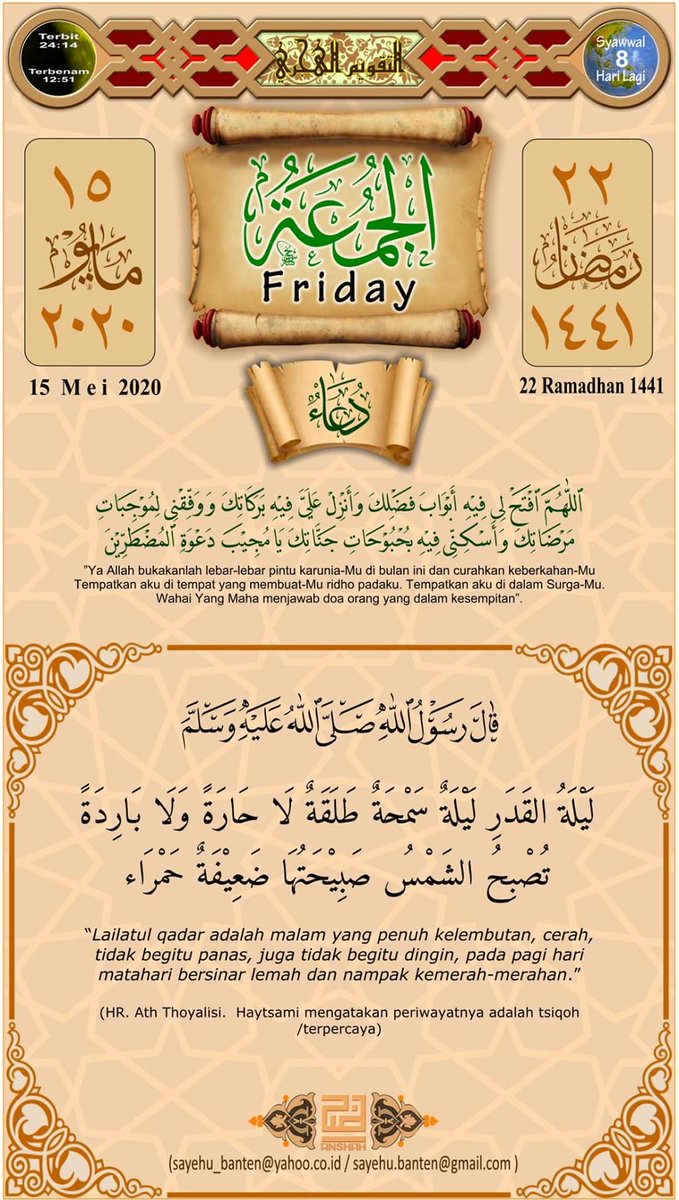 Terbit
24:14
Terbenam
12:51
التقويم الهجري
Syawwal
8
Hari Lagi
١٥
مايو
٢٠٢٠
15 Mei 2020
الجُمُعَةُ
Friday
٢٢
رَمَضَان
١٤٤١
22 Ramadhan 1441
دُعَاءُ
اَللّٰهُمَّ افْتَحْ لِى فِيْهِ أَبْوَابَ فَضْلِكَ وَأَنْزِلْ عَلَيَّ فِيْهِ بَرَكَاتِكَ وَوَفِّقْنِى لِمُوْجِبَاتِ
مَرْضَاتِكَ وَأَسْكِنِّى فِيْهِ بُحْبُوْحَاتِ جَنَّاتِكَ يَا مُجِيْبَ دَعْوَةِ الْمُضْطَرِّيْنَ
"Ya Allah bukakanlah lebar-lebar pintu karunia-Mu di bulan ini dan curahkan keberkahan-Mu
Tempatkan aku di tempat yang membuat-Mu ridho padaku. Tempatkan aku di dalam Surga-Mu.
Wahai Yang Maha menjawab doa orang yang dalam kesempitan".
قَالَ رَسُوْلُ اللّٰهِ صَلَّى اللّٰهُ عَلَيْهِ وَسَلَّمَ
لَيْلَةُ القَدَرِ لَيْلَةٌ سَمْحَةٌ طَلَقَةٌ لَا حَارَةً وَلَا بَارِدَةً
تُصْبِحُ الشَمْسُ صَبِيْحَتُهَا ضَعِيْفَةٌ حَمْرَاء
“Lailatul qadar adalah malam yang penuh kelembutan, cerah,
tidak begitu panas, juga tidak begitu dingin, pada pagi hari
matahari bersinar lemah dan nampak kemerah-merahan.”
(HR. Ath Thoyalisi. Haytsami mengatakan periwayatnya adalah tsiqoh
/terpercaya)
ANSHAH
(sayehu_banten@yahoo.co.id / sayehu.banten@gmail.com )